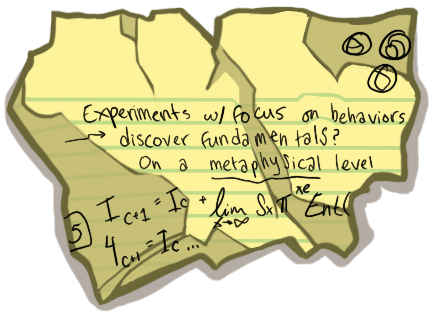 A 5
6
Experiments w/ Focus on behaviors
→ discover fundamentals?
On a metaphysical level
5 I c+1 = I c + lim x→∞ Sx π xe Entl
4 c+1 = I c ...